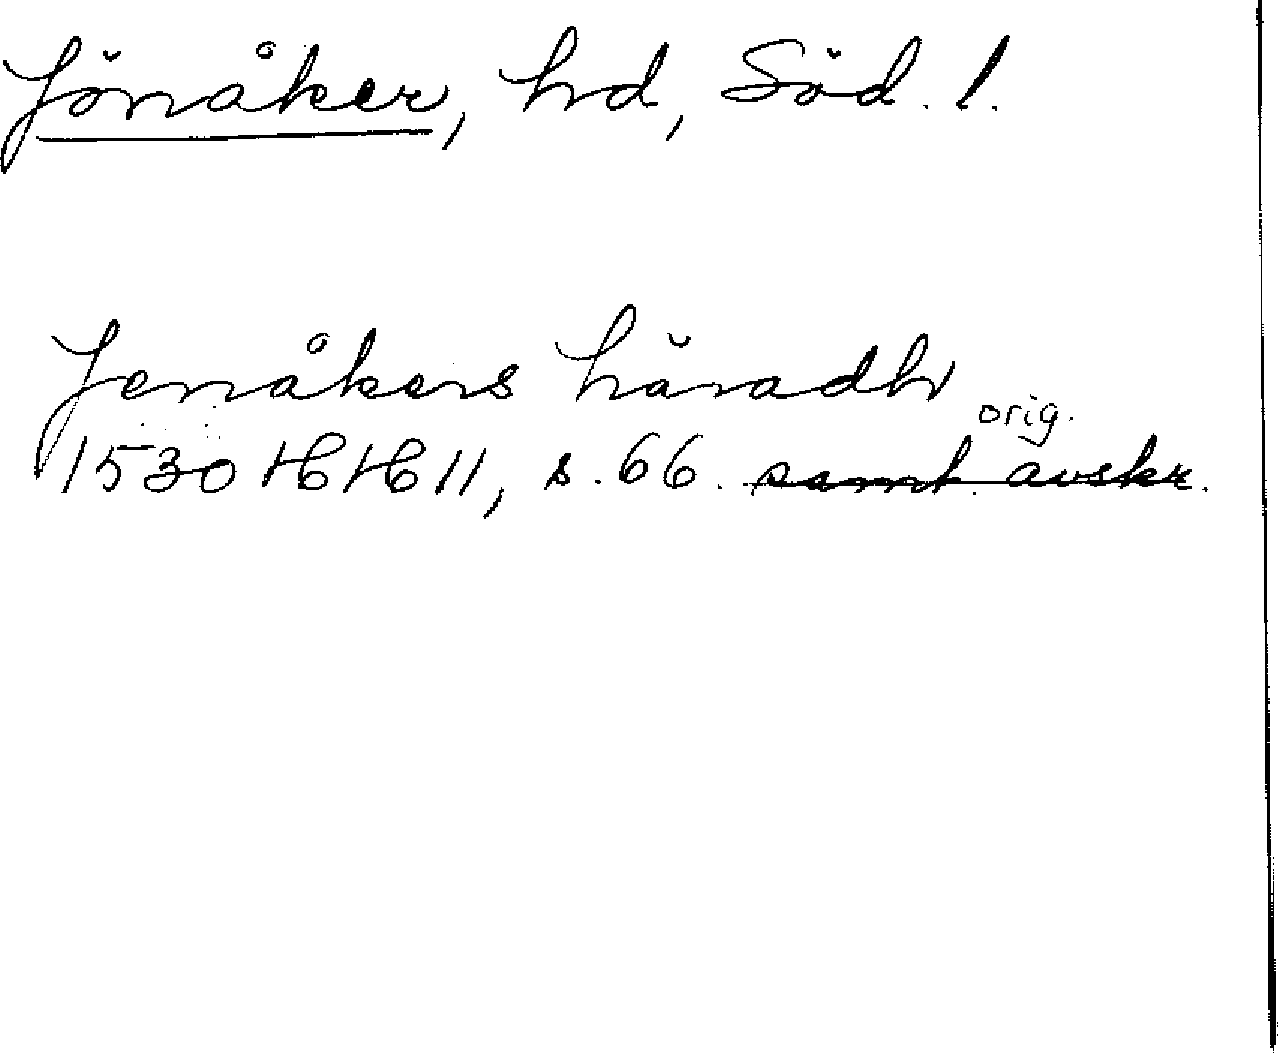 Jönåker, hd, Söd. l.
Jenåkers häradh
orig.
1530 HH 11, s. 66. samt. avskr.